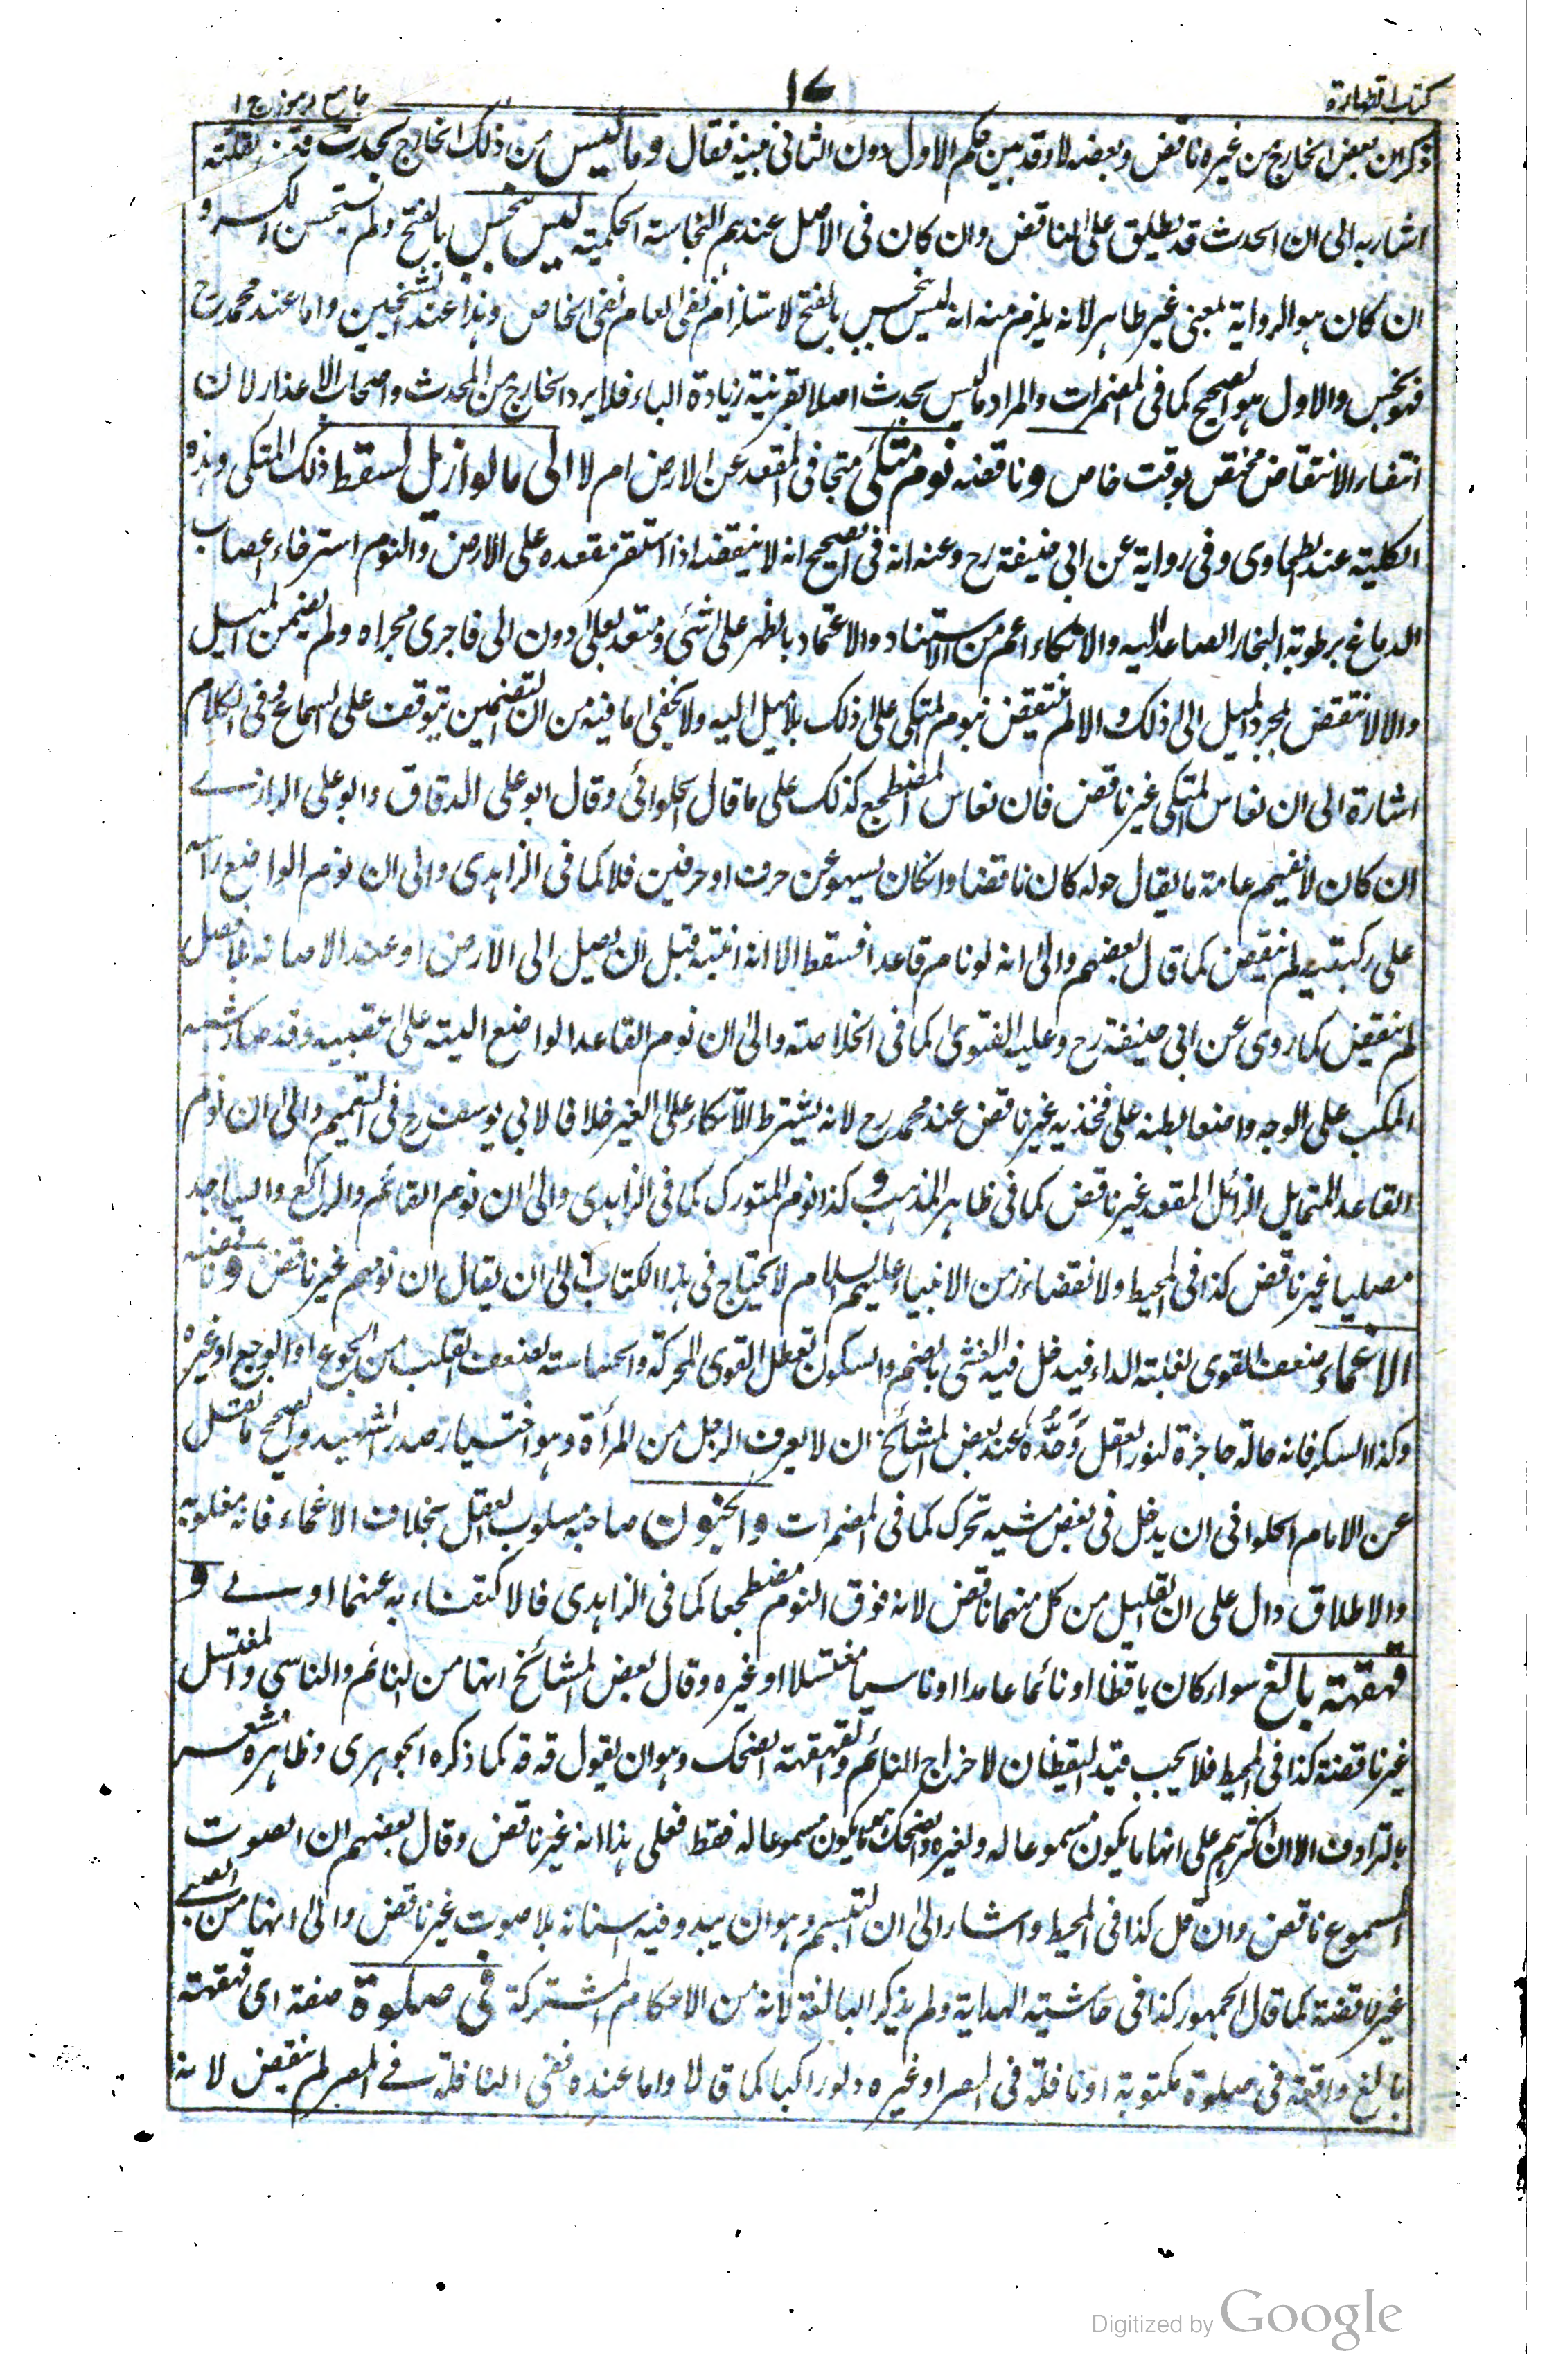 كتاب الطهارة
١٧
جامع رموز ج ١
ذكر ان بعض الخارج من غيره ناقض وبعضه لا وقد بين حكم الاول دون الثانى فبينه فقال وما ليس من ذلك الخارج بحدث لقلته
اشار به الى ان الحدث قد يطلق على الناقض وان كان فى الاصل عندهم النجاسة الحكمية ليس بنجس بالفتح ولم يستحسن الكسر و
ان كان هو الرواية بمعنى غير طاهر لانه يلزم منه انه ليس بنجس بالفتح لاستلزام نفى العام نفى الخاص وهذا عند الشيخين واما عند محمد رح
فهو نجس والاول هو الصحيح كما فى المضمرات والمراد ما ليس بحدث اصلا بقرينة زيادة الباء فلا يرد الخارج من المحدث واصحاب الاعذار لان
انتفاء الانتقاض مختص بوقت خاص وناقضه نوم متكئ متجافى المقعد عن الارض ام لا الى ما لو ازيل لسقط ذلك المتكى وهذه
الكلية عند الطحاوى وفى رواية عن ابى حنيفة رح وعنه انه فى الصحيح انه لا ينقضه اذا استقر مقعده على الارض والنوم استرخاء اعصاب
الدماغ برطوبة البخار الصاعد اليه والاتكاء اعم من الاستناد والاعتماد بالظهر على شئ ومتعد بعلى دون الى فاجرى مجراه ولم يضمن الميل
والا لانتقض لمجرد الميل الى ذلك والا لم ينتقض بنوم المتكى على ذلك بلا ميل اليه ولا يخفى ما فيه من ان التضمين يتوقف على السماع وفى الكلام
اشارة الى ان نعاس المتكى غير ناقض فان نعاس المضطجع كذلك على ما قال الحلوائى وقال ابو على الدقاق وابو على الرازے
ان كان لا يفهم عامة ما يقال حوله كان ناقضا وان كان يسهو عن حرف او حرفين فلا كما فى الزاهدى والى ان نوم الواضع رأسه
على ركبتيه لم ينقض كما قال بعضهم والى انه لو نام قاعدا فسقط الا انه انتبه قبل ان يصل الى الارض او عند الاصابة بلا فصل
لم ينقض كما روى عن ابى حنيفة رح وعليه الفتوى كما فى الخلاصة والى ان نوم القاعد الواضع اليتيه على عقبيه وقد صار شبه
المكب على الوجه واضعا بطنه على فخذيه غير ناقض عند محمد رح لانه يشترط الاتكاء على الغير خلافا لابى يوسف رح فى التعميم والى ان نوم
القاعد المتمايل الزائل المقعد غير ناقض كما فى ظاهر المذهب وكذا نوم المتورك كما فى الزاهدى والى ان نوم القائم والراكع والساجد
مصليا غير ناقض كذا فى المحيط ولانقضاء زمن الانبياء عليهم السلام لا يحتاج فى هذا الكتاب الى ان يقال ان نومهم غير ناقض وناقضه
الاغماء ضعف القوى لغلبة الداء فيدخل فيه الغشى بالضم والسكون تعطل القوى المحركة والحساسة لضعف القلب من الجوع او الوجع او غيره
وكذا السكر فانه حالة حاجزة لنور العقل وَحَدُّهُ عند بعض المشائخ ان لا يعرف الرجل من المرأة وهو اختيار صدر الشهيد والصحيح ما نقل
عن الامام الحلوانى ان يدخل فى بعض مشيه تحرك كما فى المضمرات والجنون صاحبه مسلوب العقل بخلاف الاغماء فانه مغلوبه
والاطلاق دال على ان القليل من كل منهما ناقض لانه فوق النوم مضطجعا كما فى الزاهدى فالاكتفاء به عنهما اولے و
قهقهة بالغ سواء كان ياقظا او نائما عامدا او ناسيا مغتسلا او غيره وقال بعض المشائخ انها من النائم والناسى والمغتسل
غير ناقضة كذا فى المحيط فلا يجب قيد اليقظان لاخراج النائم والقهقهة الضحك وهو ان يقول قه قه كما ذكره الجوهرى وظاهره مشعر
بالترادف الا ان اكثرهم على انها ما يكون مسموعا له ولغيره والضحك ما يكون مسموعا له فقط فعلى هذا انه غير ناقض وقال بعضهم ان الصوت
المسموع ناقض وان قل كذا فى المحيط واشار الى ان التبسم وهو ان يبدو فيه اسنانه بلا صوت غير ناقض والى انها من الصبے
غير ناقضة كما قال الجمهور كذا فى حاشية الهداية ولم يذكر البالغة لانه من الاحكام المشتركة فى صلوة صفة اى قهقهة
بالغ واقعة فى صلوة مكتوبة او نافلة فى المصر او غيره ولو راكبا كما قالا واما عنده ففى النافلة فے المصر لم ينقض لانه
Digitized by Google